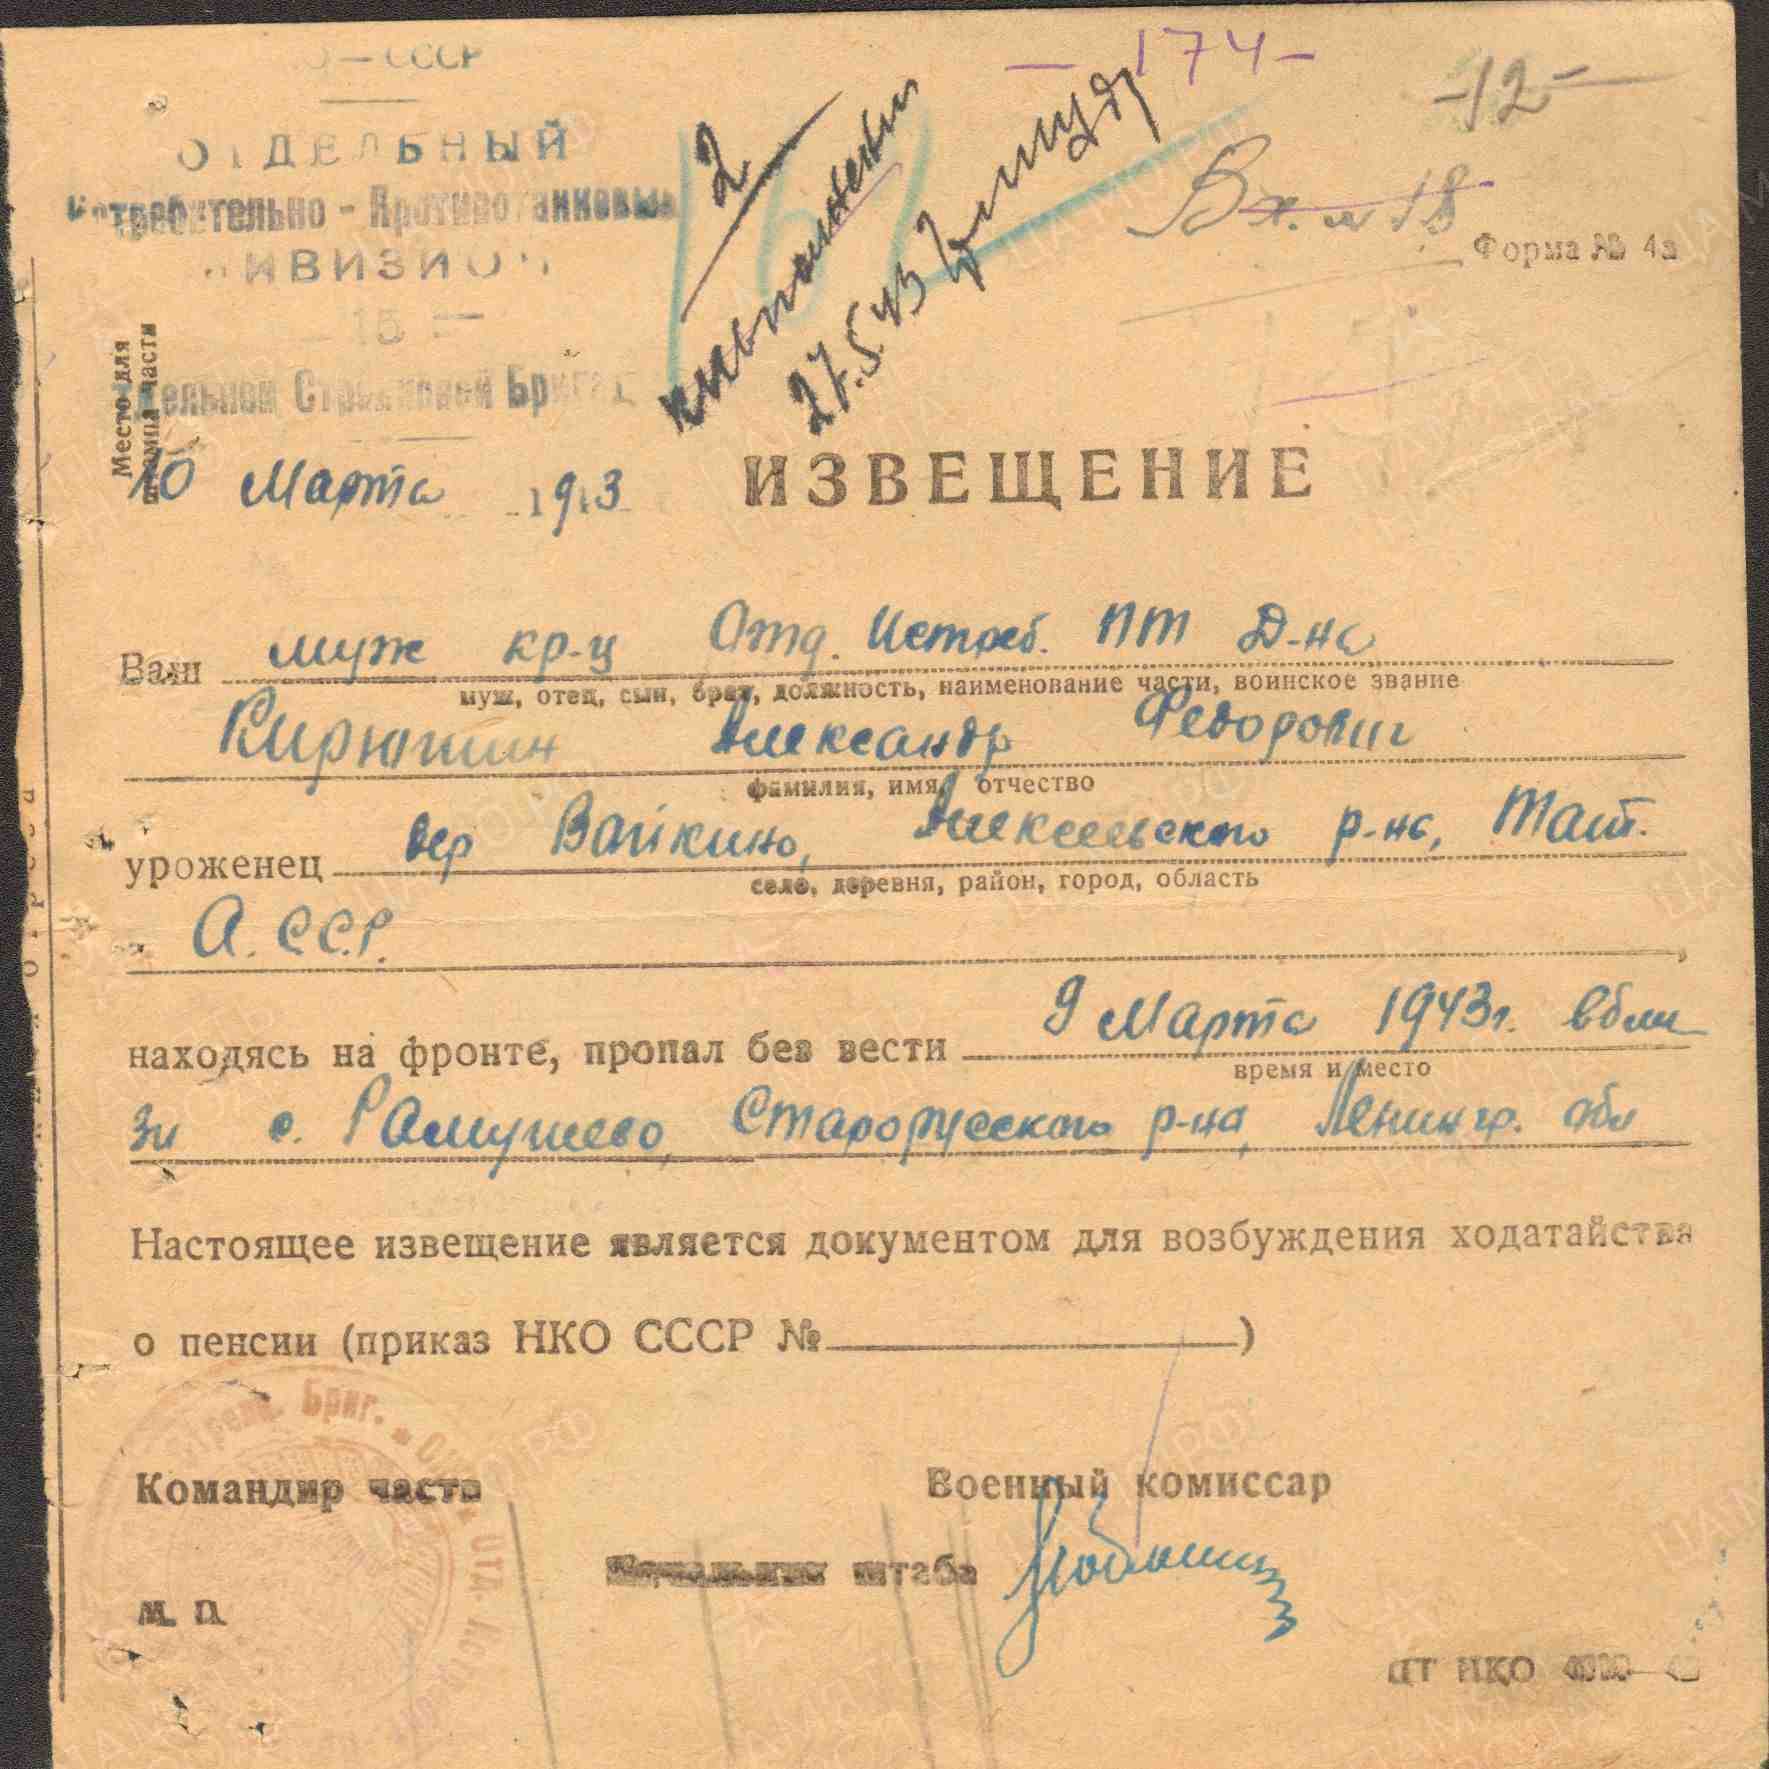 – 174 –
– 12 –
– СССР
ОТДЕЛЬНЫЙ
Истребительно - Противотанковый
ДИВИЗИОН
2
Вх. № 18
Форма № 4а
27.5.43
Место для
штампа части
Стрелковой Бригад
10 Марта 1943
ИЗВЕЩЕНИЕ
Ваш муж кр-ц Отд. Истреб. ПТ Д-на
муж, отец, сын, брат, должность, наименование части, воинское звание
Кирюшин Александр Федорович
фамилия, имя, отчество
уроженец дер Вайкино, Алексеевского р-на, Тат.
село, деревня, район, город, область
А.С.С.Р.
находясь на фронте, пропал без вести 9 Марта 1943г. вбли
время и место
зи с. Рамушево, Старорусского р-на, Ленингр. обл
Настоящее извещение является документом для возбуждения ходатайства
о пенсии (приказ НКО СССР № )
Бриг.
Командир части
Военный комиссар
Начальник штаба
М. П.
ЦТ НКО